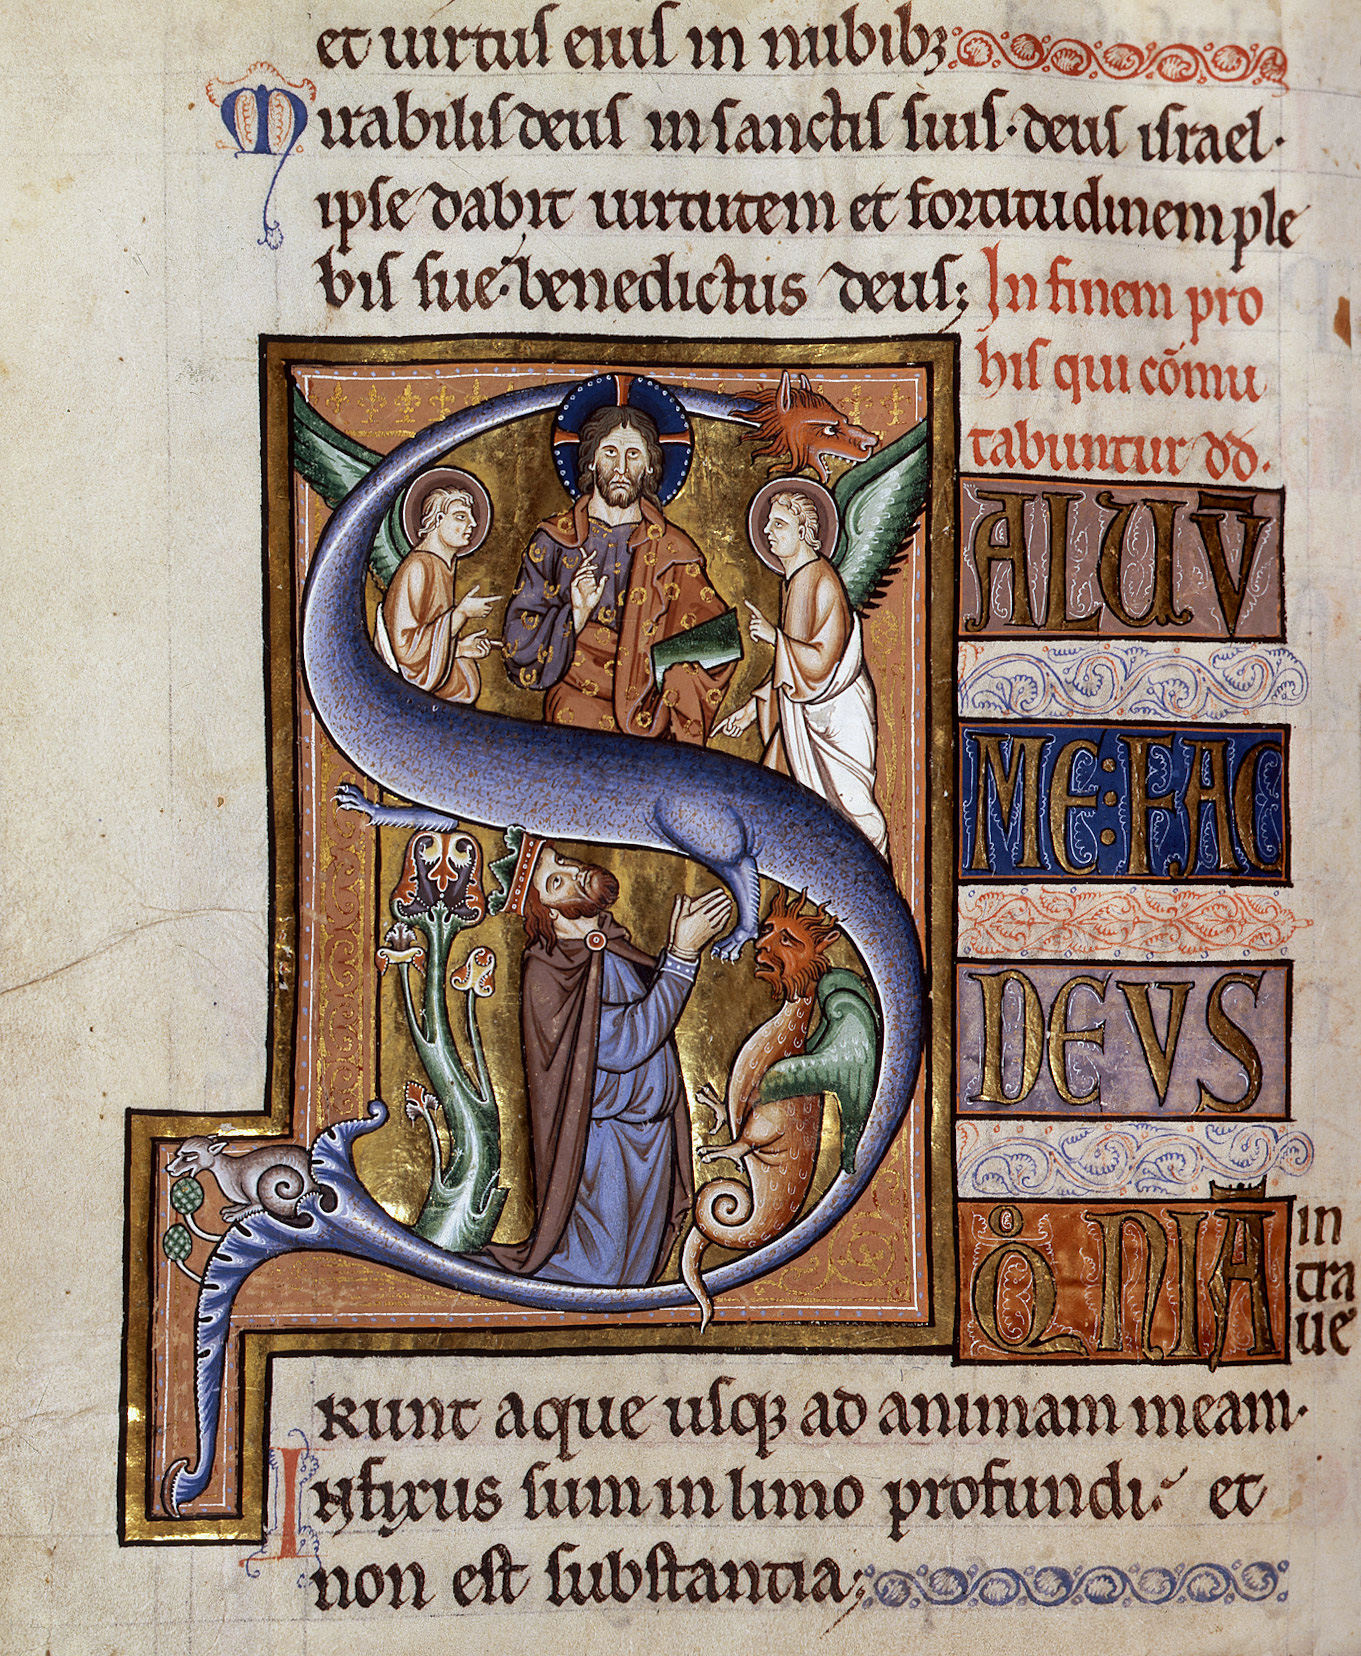 et uirtus eius in nubibꝫ
Mirabilis deus in sanctis suis· deus israel·
ipse dabit uirtutem et fortitudinem ple
bis sue· benedictus deus; In finem pro
his qui cōmu
tabuntur dd·
SALUV̄
ME: FAC
DEVS
QͦNIĀ in
tra
ue
runt aque usqꝫ ad animam meam·
Infixus sum in limo profundi· et
non est substantia;